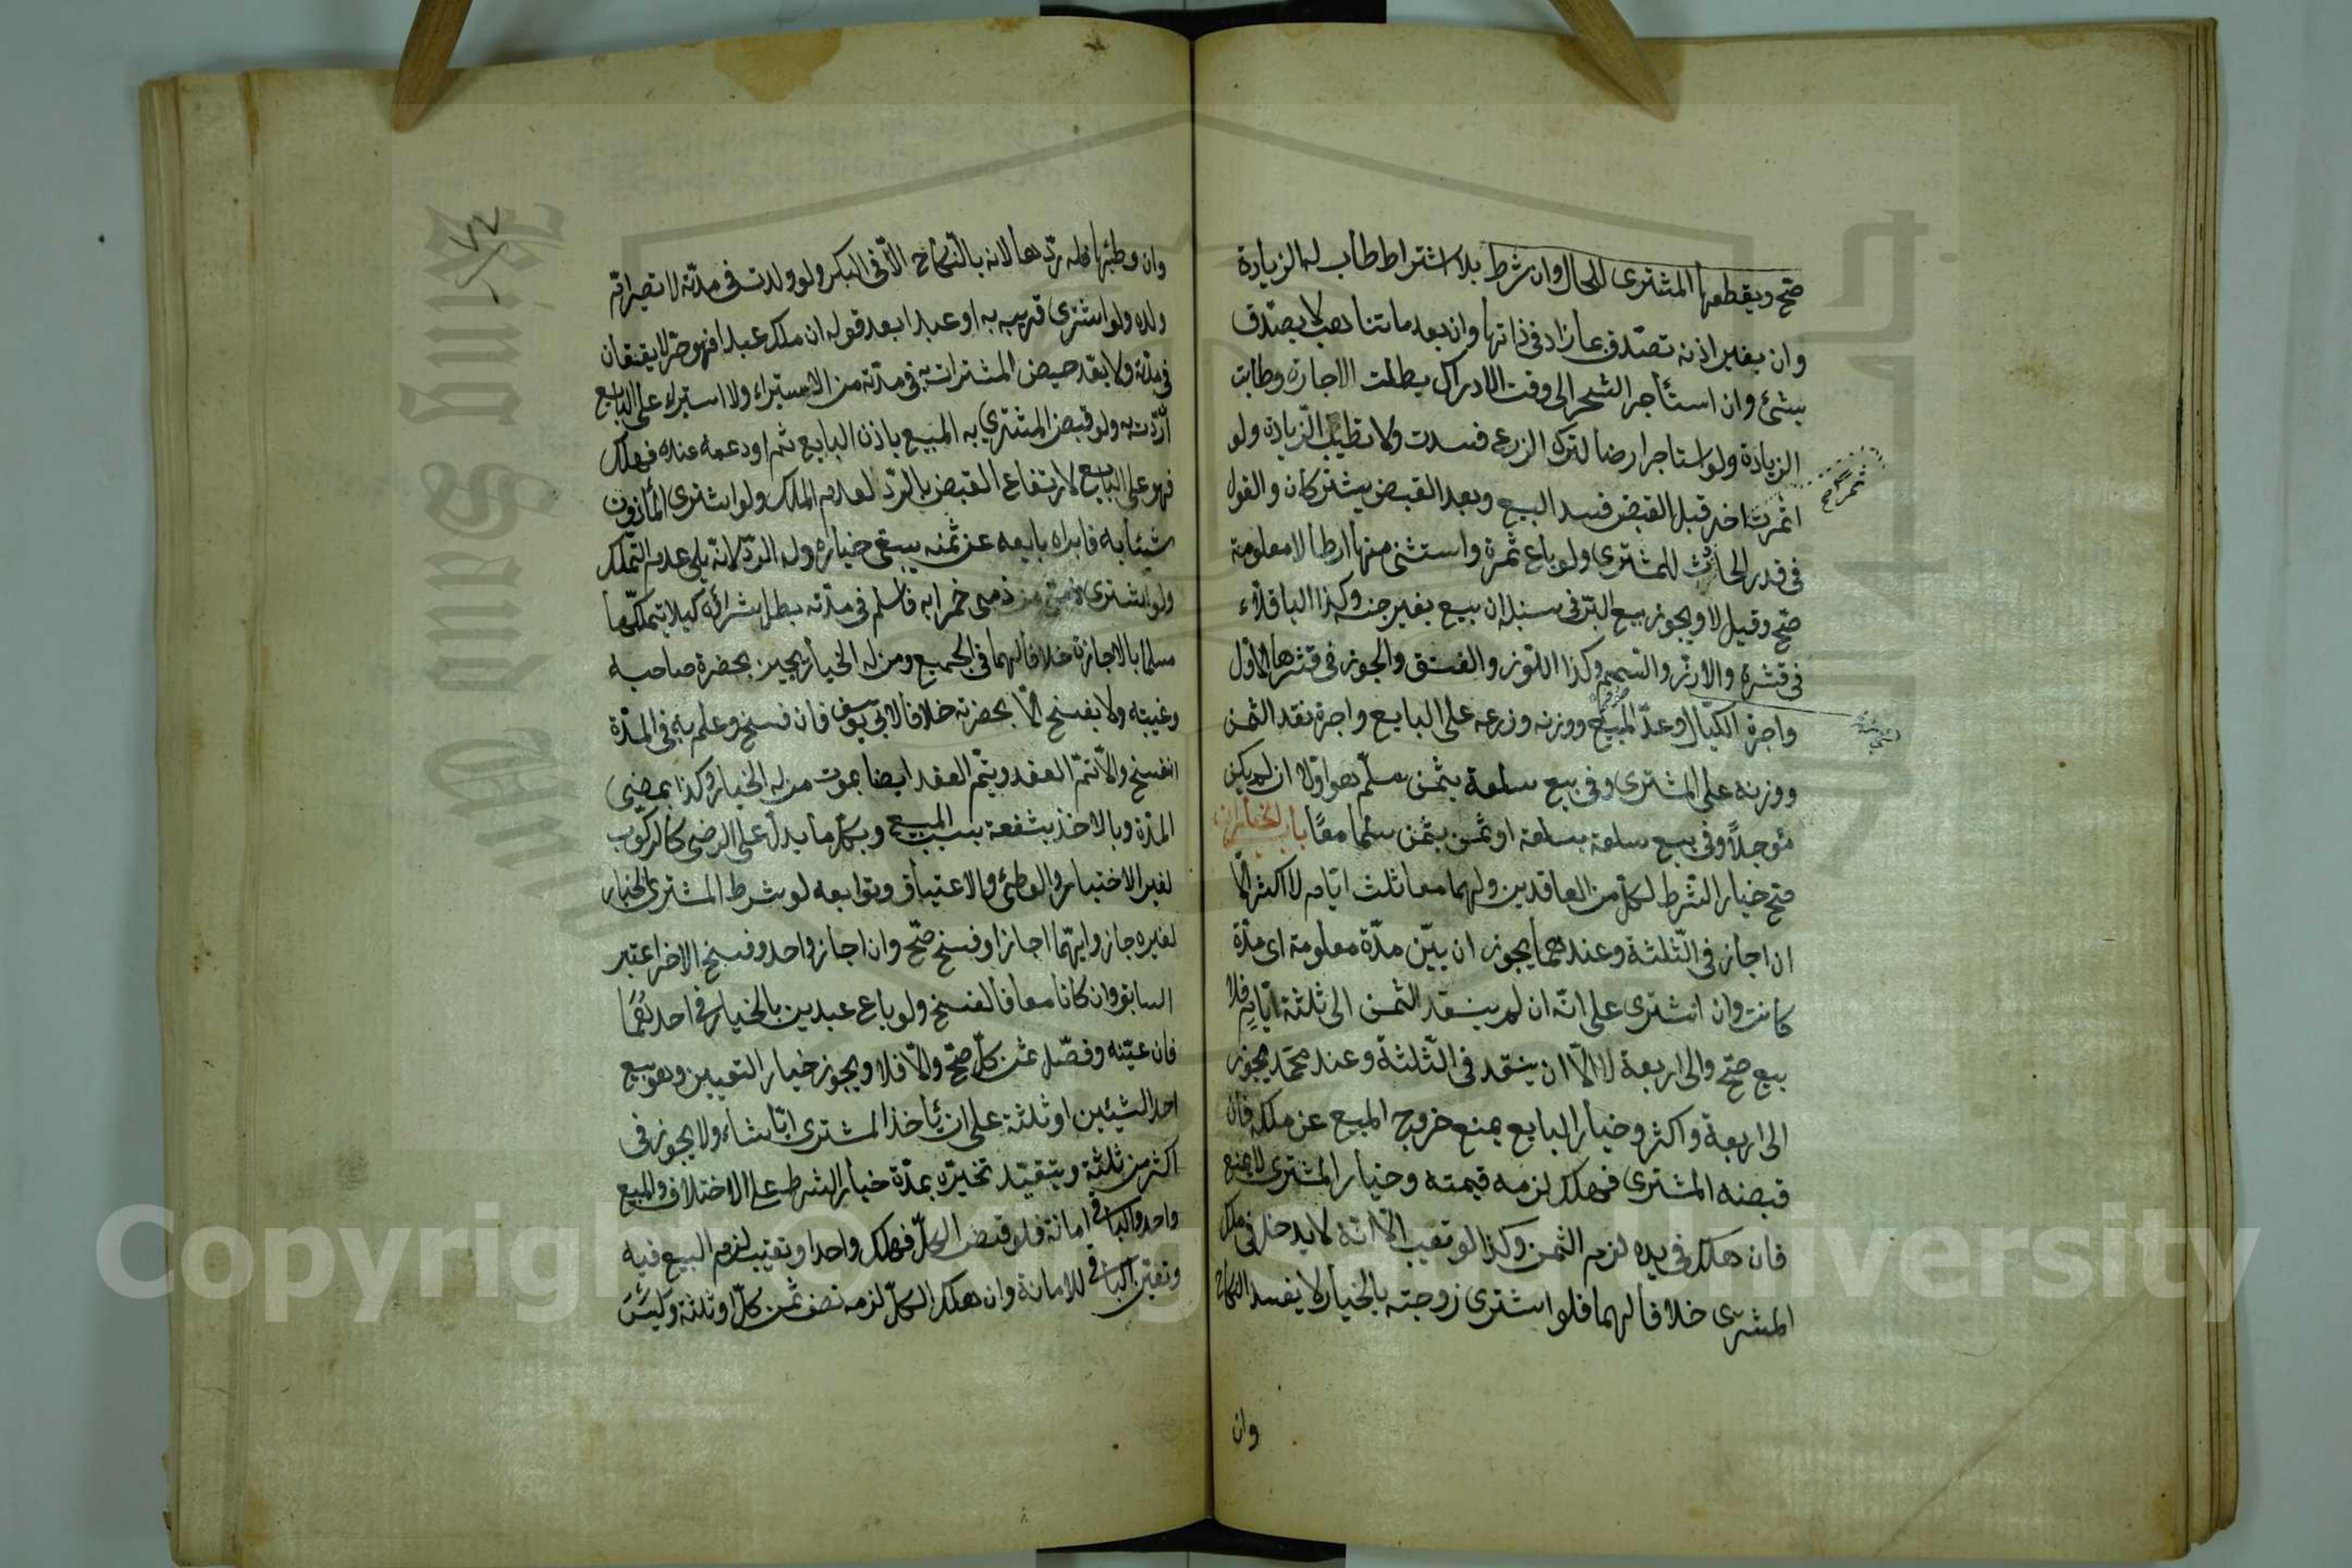 صح ويقطعها المشترى للحال وان شرط بلا اشتراط طاب له الزيادة
وان بغير اذنه تصدق بما زاد فى ذاتها وان بعد ما تناهت لا يصدق
بشئ وان استأجر الشجر الى وقت الادراك بطلت الاجارة وطابت
الزيادة ولو استاجر ارضا لترك الزرع فسدت ولا تطيب الزيادة ولو
اثمرت اخر قبل القبض فسد البيع وبعد القبض يشتركان والقول
فى قدر الحادث للمشترى ولو باع ثمرة واستثنى منها ارطالا معلومة
صح وقيل لا ويجوز بيع البر فى سنبله ان بيع بغير جنسه وكذا الباقلاء
فى قشره والارز والسمسم وكذا اللوز والفستق والجوز فى قشرها الاول
واجرة الكيال وعد المبيع ووزنه وزرعه على البايع واجرة نقد الثمن
ووزنه على المشترى وفى بيع سلعة بثمن سلم هو اولا ان لم يكن
مؤجلا وفى بيع سلعة بسلعة او ثمن بثمن سلما معا باب الخيارات
صح خيار الشرط لكل من العاقدين ولهما معا ثلث ايام لا اكثر الا
ان اجاز فى الثلثة وعندهما يجوز ان بين مدة معلومة اى مدة
كانت وان اشترى على انه ان لم ينقد الثمن الى ثلثة ايام فلا
بيع صح والى اربعة لا الا ان ينقد فى الثلثة وعند محمد يجوز
الى اربعة واكثر وخيار البايع يمنع خروج المبيع عن ملكه فان
قبضه المشترى فهلك لزمه قيمته وخيار المشترى لا يمنع
فان هلك فى يده لزم الثمن وكذا لو تعيب الا انه لا يدخل فى ملك
المشترى خلافا لهما فلو اشترى زوجته بالخيار لا يفسد النكاح
وان
وان وطئها فله ردها لانه بالنكاح الا فى البكر ولو ولدت فى مدته لا تصير امه
ولده ولو اشترى قريبه به او عبدا بعد قوله ان ملك عبدا فهو حر لا يعتقان
فى مدته ولا يعد حيض المشتراة به فى مدته من الاستبراء ولا استبراء على البايع
ان ردت به ولو قبض المشترى به المبيع باذن البايع ثم اودعه عنده فهلك
فهو على البايع لارتفاع القبض بالرد لعدم الملك ولو اشترى المأذون
شيئا به فابراه بايعه عن ثمنه يبقى خياره وله الرد لانه يلى عدم التملك
ولو اشترى ذمى من ذمى خمرا به فاسلم فى مدته بطل شرائه كيلا يتملكها
مسلما بالاجازة خلافا لهما فى الجميع ومن له الخيار يجيز بحضرة صاحبه
وغيبته ولا يفسخ الا بحضرته خلافا لابى يوسف فان فسخ وعلم به فى المدة
انفسخ والا تم العقد ويتم العقد ايضا بموت من له الخيار وكذا بمضى
المدة وبالاخذ بشفعة بسبب المبيع وبكل ما يدل على الرضى كالركوب
لغير الاختبار والوطئ والاعتاق وتوابعه لو شرط المشترى الخيار
لغيره جاز وايهما اجاز او فسخ صح وان اجاز واحد وفسخ الاخر اعتبر
السابق وان كانا معا فالفسخ ولو باع عبدين بالخيار فى احدهما
فان عينه وفصل ثمن كل صح والا فلا ويجوز خيار التعيين وهو بيع
احد الشيئين او ثلثة على ان يأخذ المشترى ايا شاء ولا يجوز فى
اكثر من ثلثة ويتقيد تخيره بمدة خيار الشرط على الاختلاف والمبيع
واحد والباقى امانة فلو قبض الكل فهلك واحد او تعيب لزم البيع فيه
وتعين الباقى للامانة وان هلك الكل لزمه نصف ثمن كل او ثلثه وليس
Copyright © King Saud University